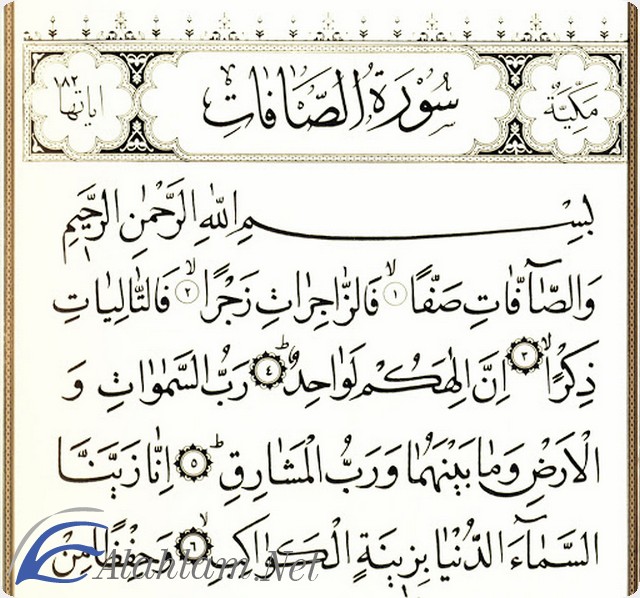 مَكِّيَّةٌ
سُورَةُ الصَّافَاتِ
اياتها ١٨٢
بِسْمِ اللّٰهِ الرَّحْمٰنِ الرَّحِيمِ
وَالصَّٓافَّاتِ صَفًّاۙ ١ فَالزَّاجِرَاتِ زَجْرًاۙ ٢ فَالتَّالِيَاتِ
ذِكْرًاۙ ٣ اِنَّ اِلٰهَكُمْ لَوَاحِدٌۜ ٤ رَبُّ السَّمٰوَاتِ وَ
الْاَرْضِ وَمَا بَيْنَهُمَا وَرَبُّ الْمَشَارِقِۜ ٥ اِنَّا زَيَّنَّا
السَّمَٓاءَ الدُّنْيَا بِزِينَةٍ الْكَوَاكِبِۙ ٦ وَحِفْظًا مِنْ
Alahlam.Net